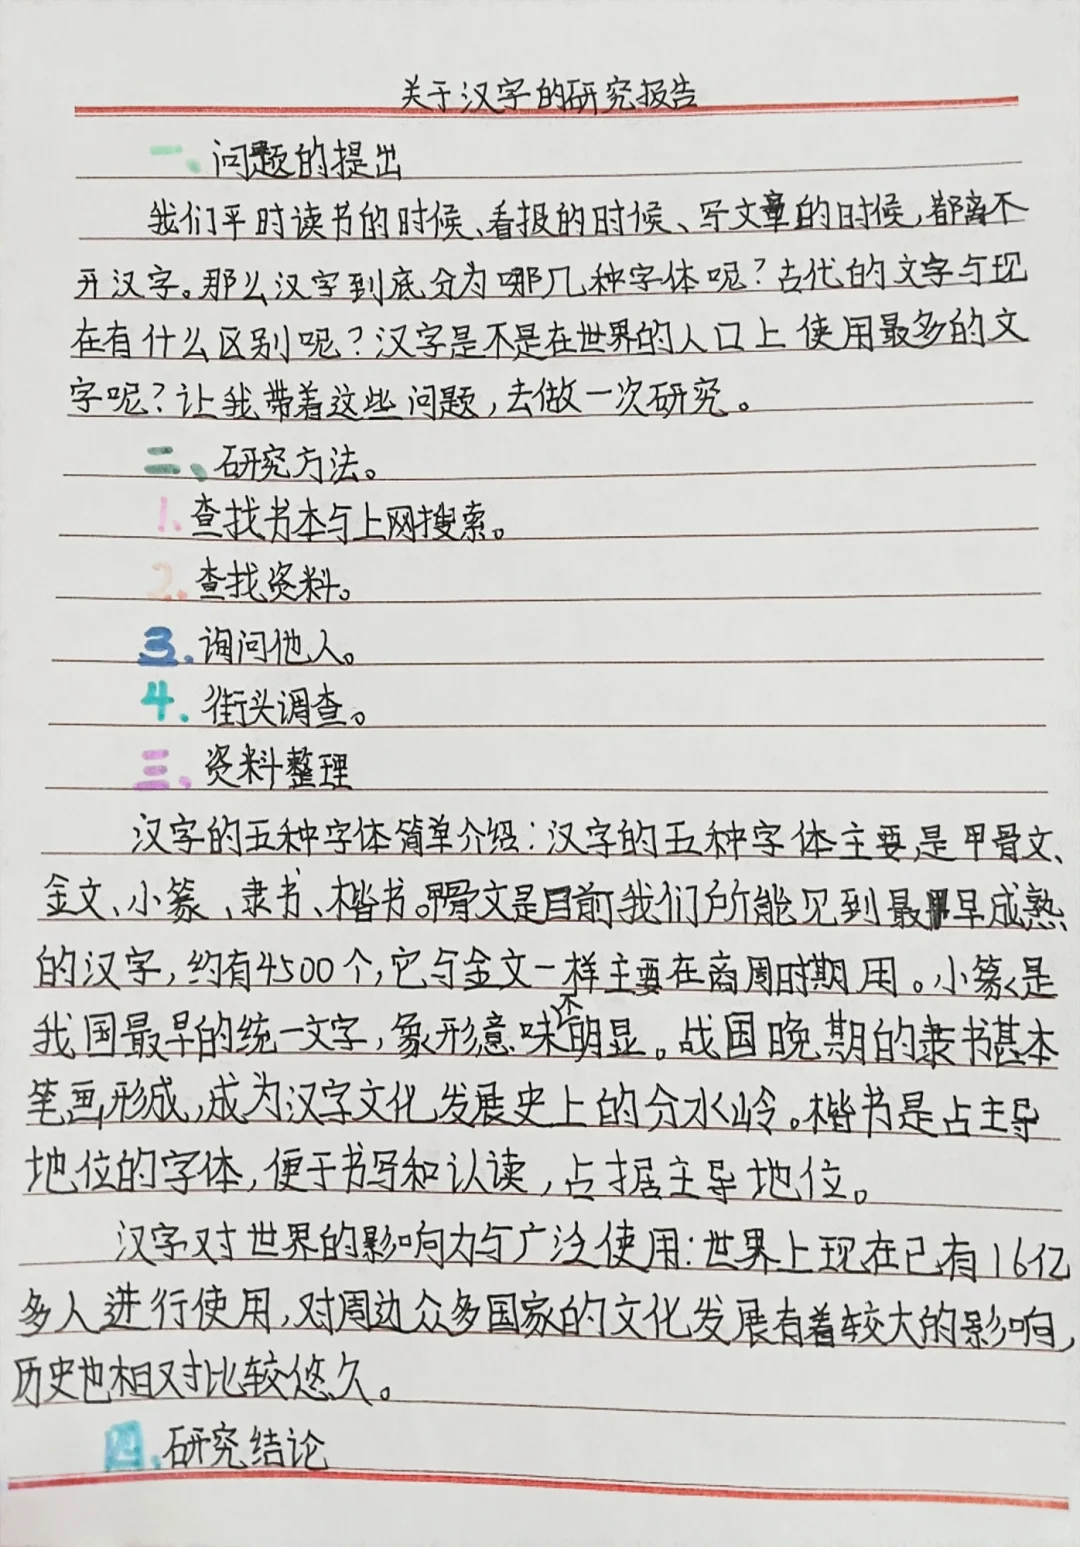 关于汉字的研究报告
一、问题的提出
我们平时读书的时候、看报的时候、写文章的时候，都离不
开汉字。那么汉字到底分为哪几种字体呢？古代的文字与现
在有什么区别呢？汉字是不是在世界的人口上使用最多的文
字呢？让我带着这些问题，去做一次研究。
二、研究方法。
1、查找书本与上网搜索。
2.查找资料。
3.询问他人。
4.街头调查。
三、资料整理
汉字的五种字体简单介绍：汉字的五种字体主要是甲骨文、
金文、小篆、隶书、楷书。甲骨文是目前我们所能见到最早成熟
的汉字，约有4500个，它与金文一样主要在商周时期用。小篆是
我国最早的统一文字，象形意味不明显。战国晚期的隶书基本
笔画形成，成为汉字文化发展史上的分水岭。楷书是占主导
地位的字体，便于书写和认读，占据主导地位。
汉字对世界的影响力与广泛使用：世界上现在已有16亿
多人进行使用，对周边众多国家的文化发展有着较大的影响，
历史也相对比较悠久。
四.研究结论